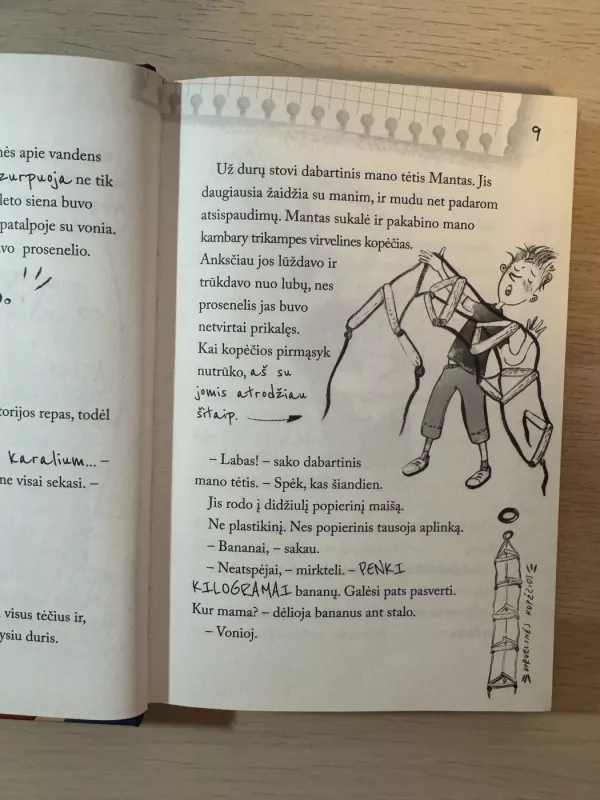 nės apie vandens
zurpuoja ne tik
leto siena buvo
patalpoje su vonia.
vo prosenelio.
torijos repas, todėl
karalium... –
ne visai sekasi. –
visus tėčius ir,
ysiu duris.
9
Už durų stovi dabartinis mano tėtis Mantas. Jis
daugiausia žaidžia su manim, ir mudu net padarom
atsispaudimų. Mantas sukalė ir pakabino mano
kambary trikampes virvelines kopėčias.
Anksčiau jos lūždavo ir
trūkdavo nuo lubų, nes
prosenelis jas buvo
netvirtai prikalęs.
Kai kopėčios pirmąsyk
nutrūko, aš su
jomis atrodžiau
šitaip.
– Labas! – sako dabartinis
mano tėtis. – Spėk, kas šiandien.
Jis rodo į didžiulį popierinį maišą.
Ne plastikinį. Nes popierinis tausoja aplinką.
– Bananai, – sakau.
– Neatspėjai, – mirkteli. – PENKI
KILOGRAMAI bananų. Galėsi pats pasverti.
Kur mama? – dėlioja bananus ant stalo.
– Vonioj.
VIRVELINĖS KOPĖČIOS